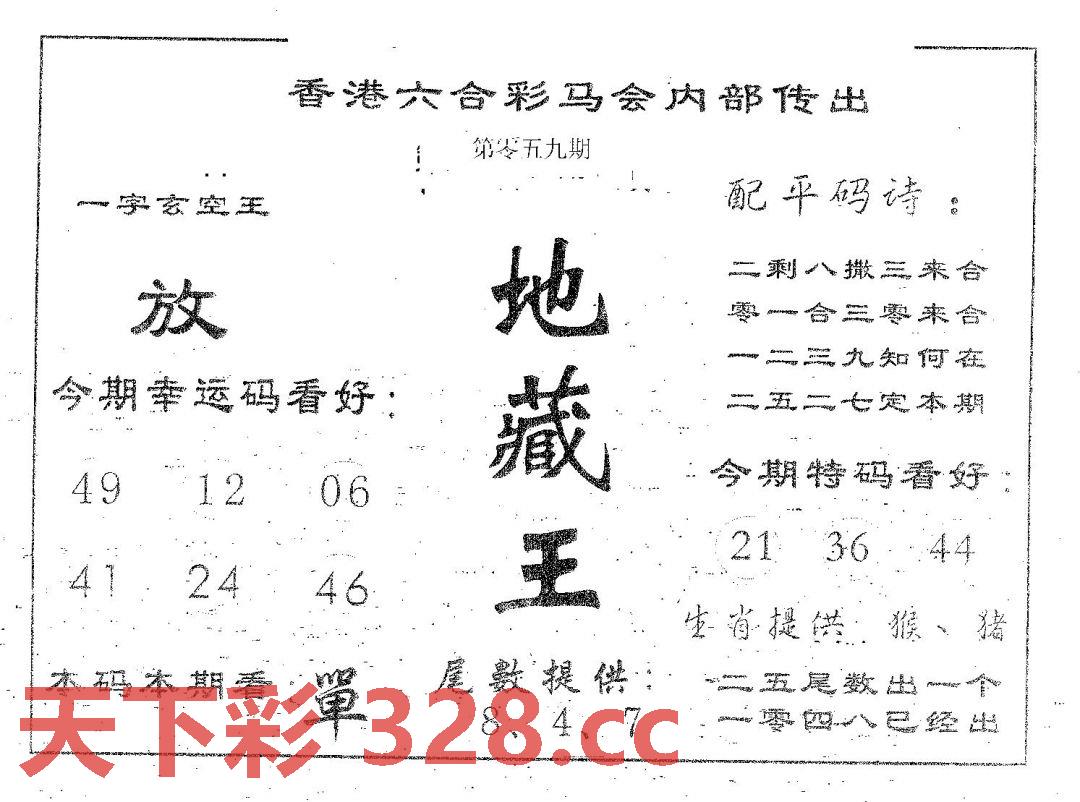 香港六合彩马会内部传出
第零五九期
一字玄空王
放
今期幸运码看好:
49 12 06
41 24 46
本码本期看 單
地藏王
尾數提供:
8、4、7
配平码诗:
二剩八撒三来合
零一合三零来合
一二三九知何在
二五二七定本期
今期特码看好:
21 36 44
生肖提供: 猴、猪
二五尾数出一个
一零四八已经出
天下彩 328.cc